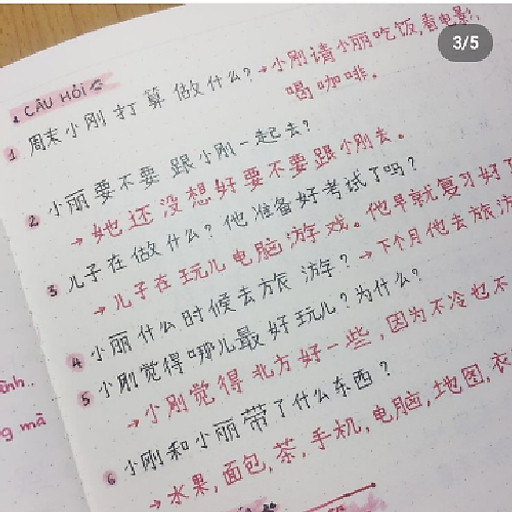 3/5
CÂU HỎI
1 周末小刚打算做什么?→小刚请小丽吃饭,看电影,
喝咖啡.
2 小丽要不要跟小刚一起去?
→她还没想好要不要跟小刚去。
3 儿子在做什么?他准备好考试了吗?
→儿子在玩儿电脑游戏。他早就复习好了
4 小丽什么时候去旅游?→下个月他去旅游
5 小刚觉得哪儿最好玩儿?为什么?
→小刚觉得北方好一些,因为不冷也不
6 小刚和小丽带了什么东西?
→水果,面包,茶,手机,电脑,地图,衣
ảnh..
g mà